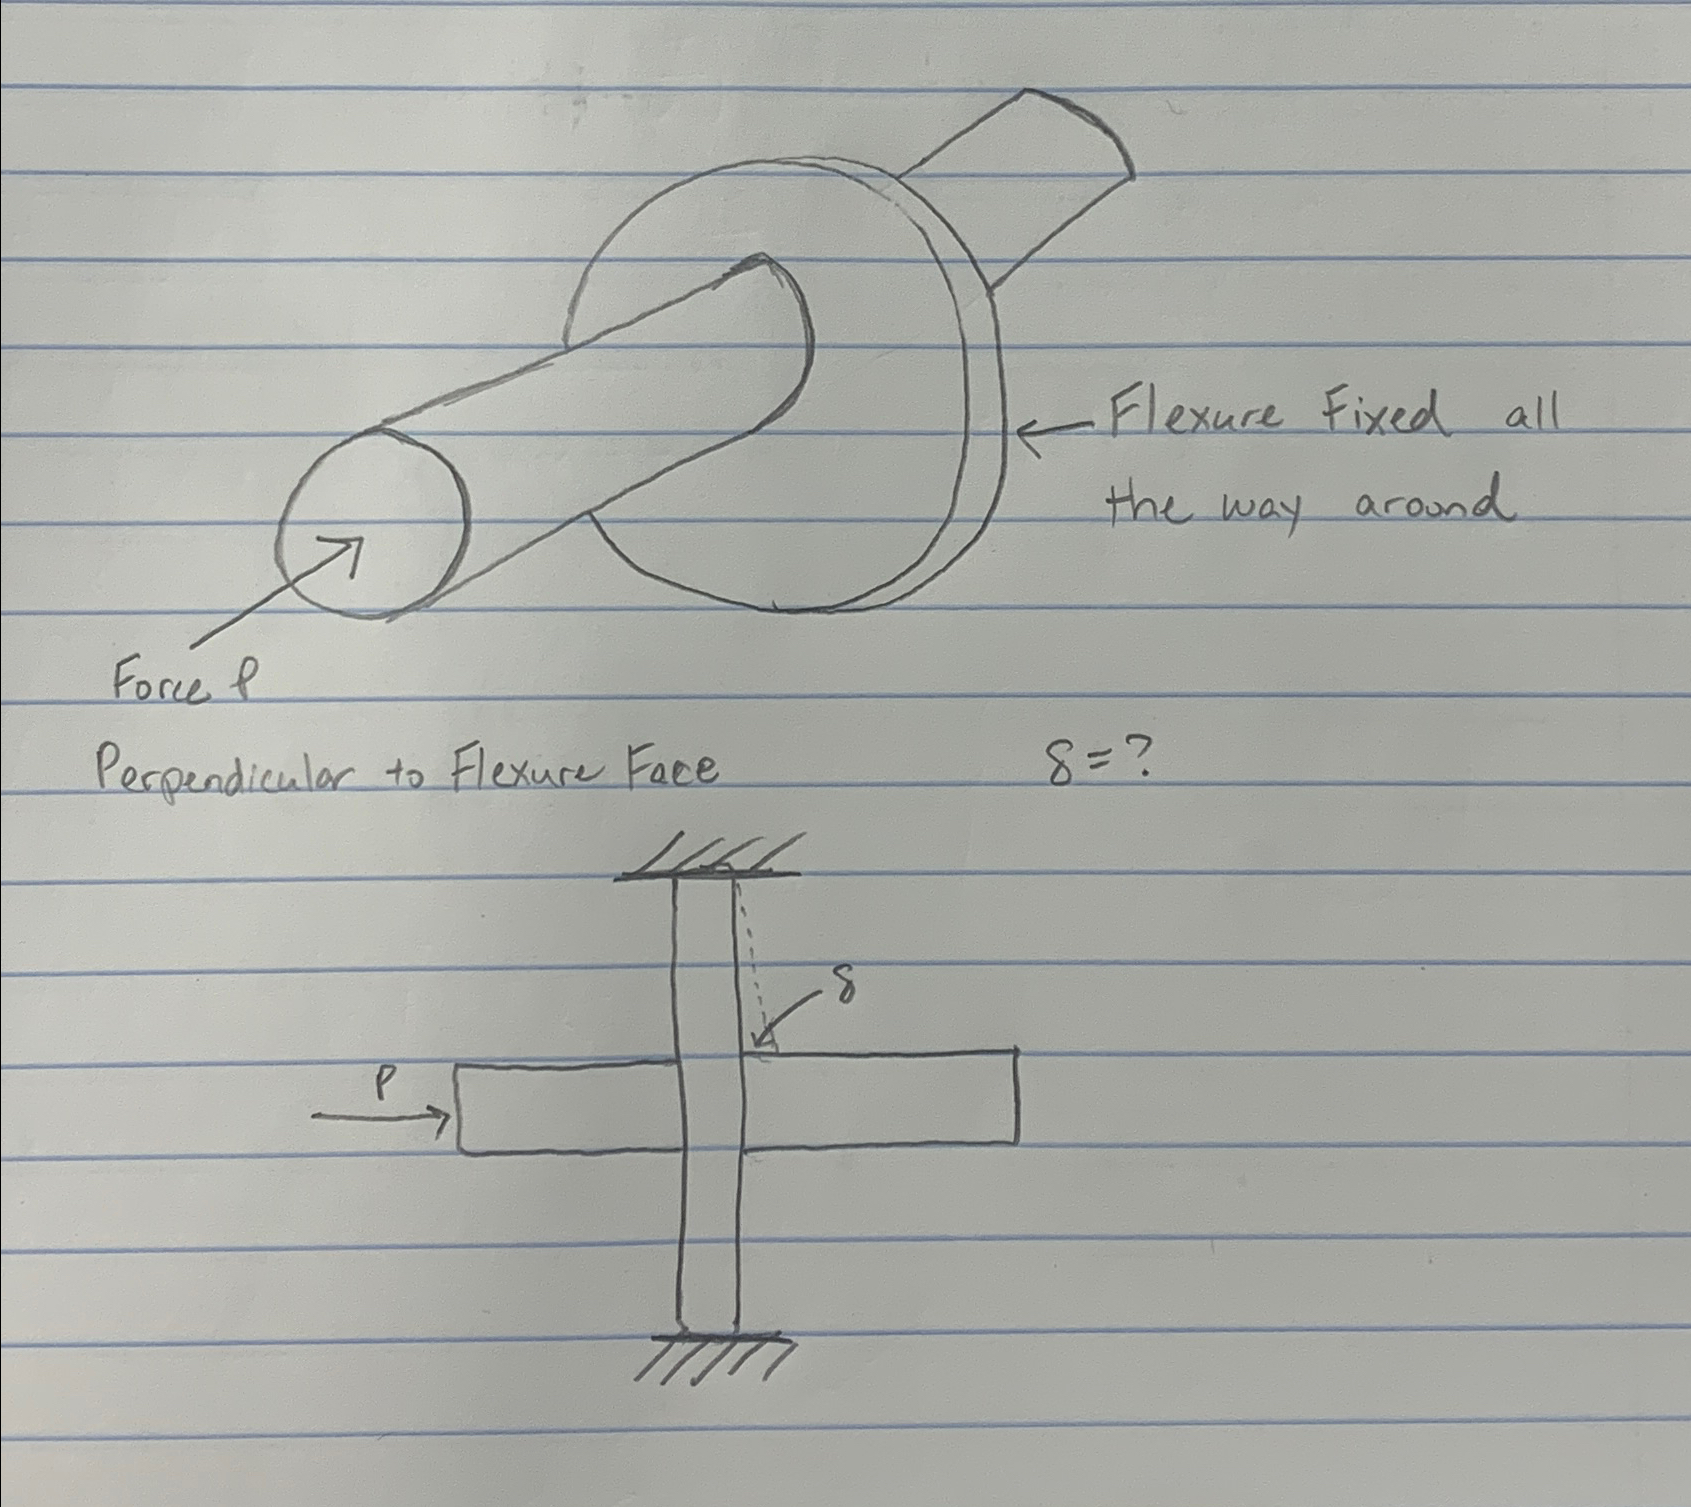 Flexure Fixed all
the way around
Force P
Perpendicular to Flexure Face
δ = ?
δ
P